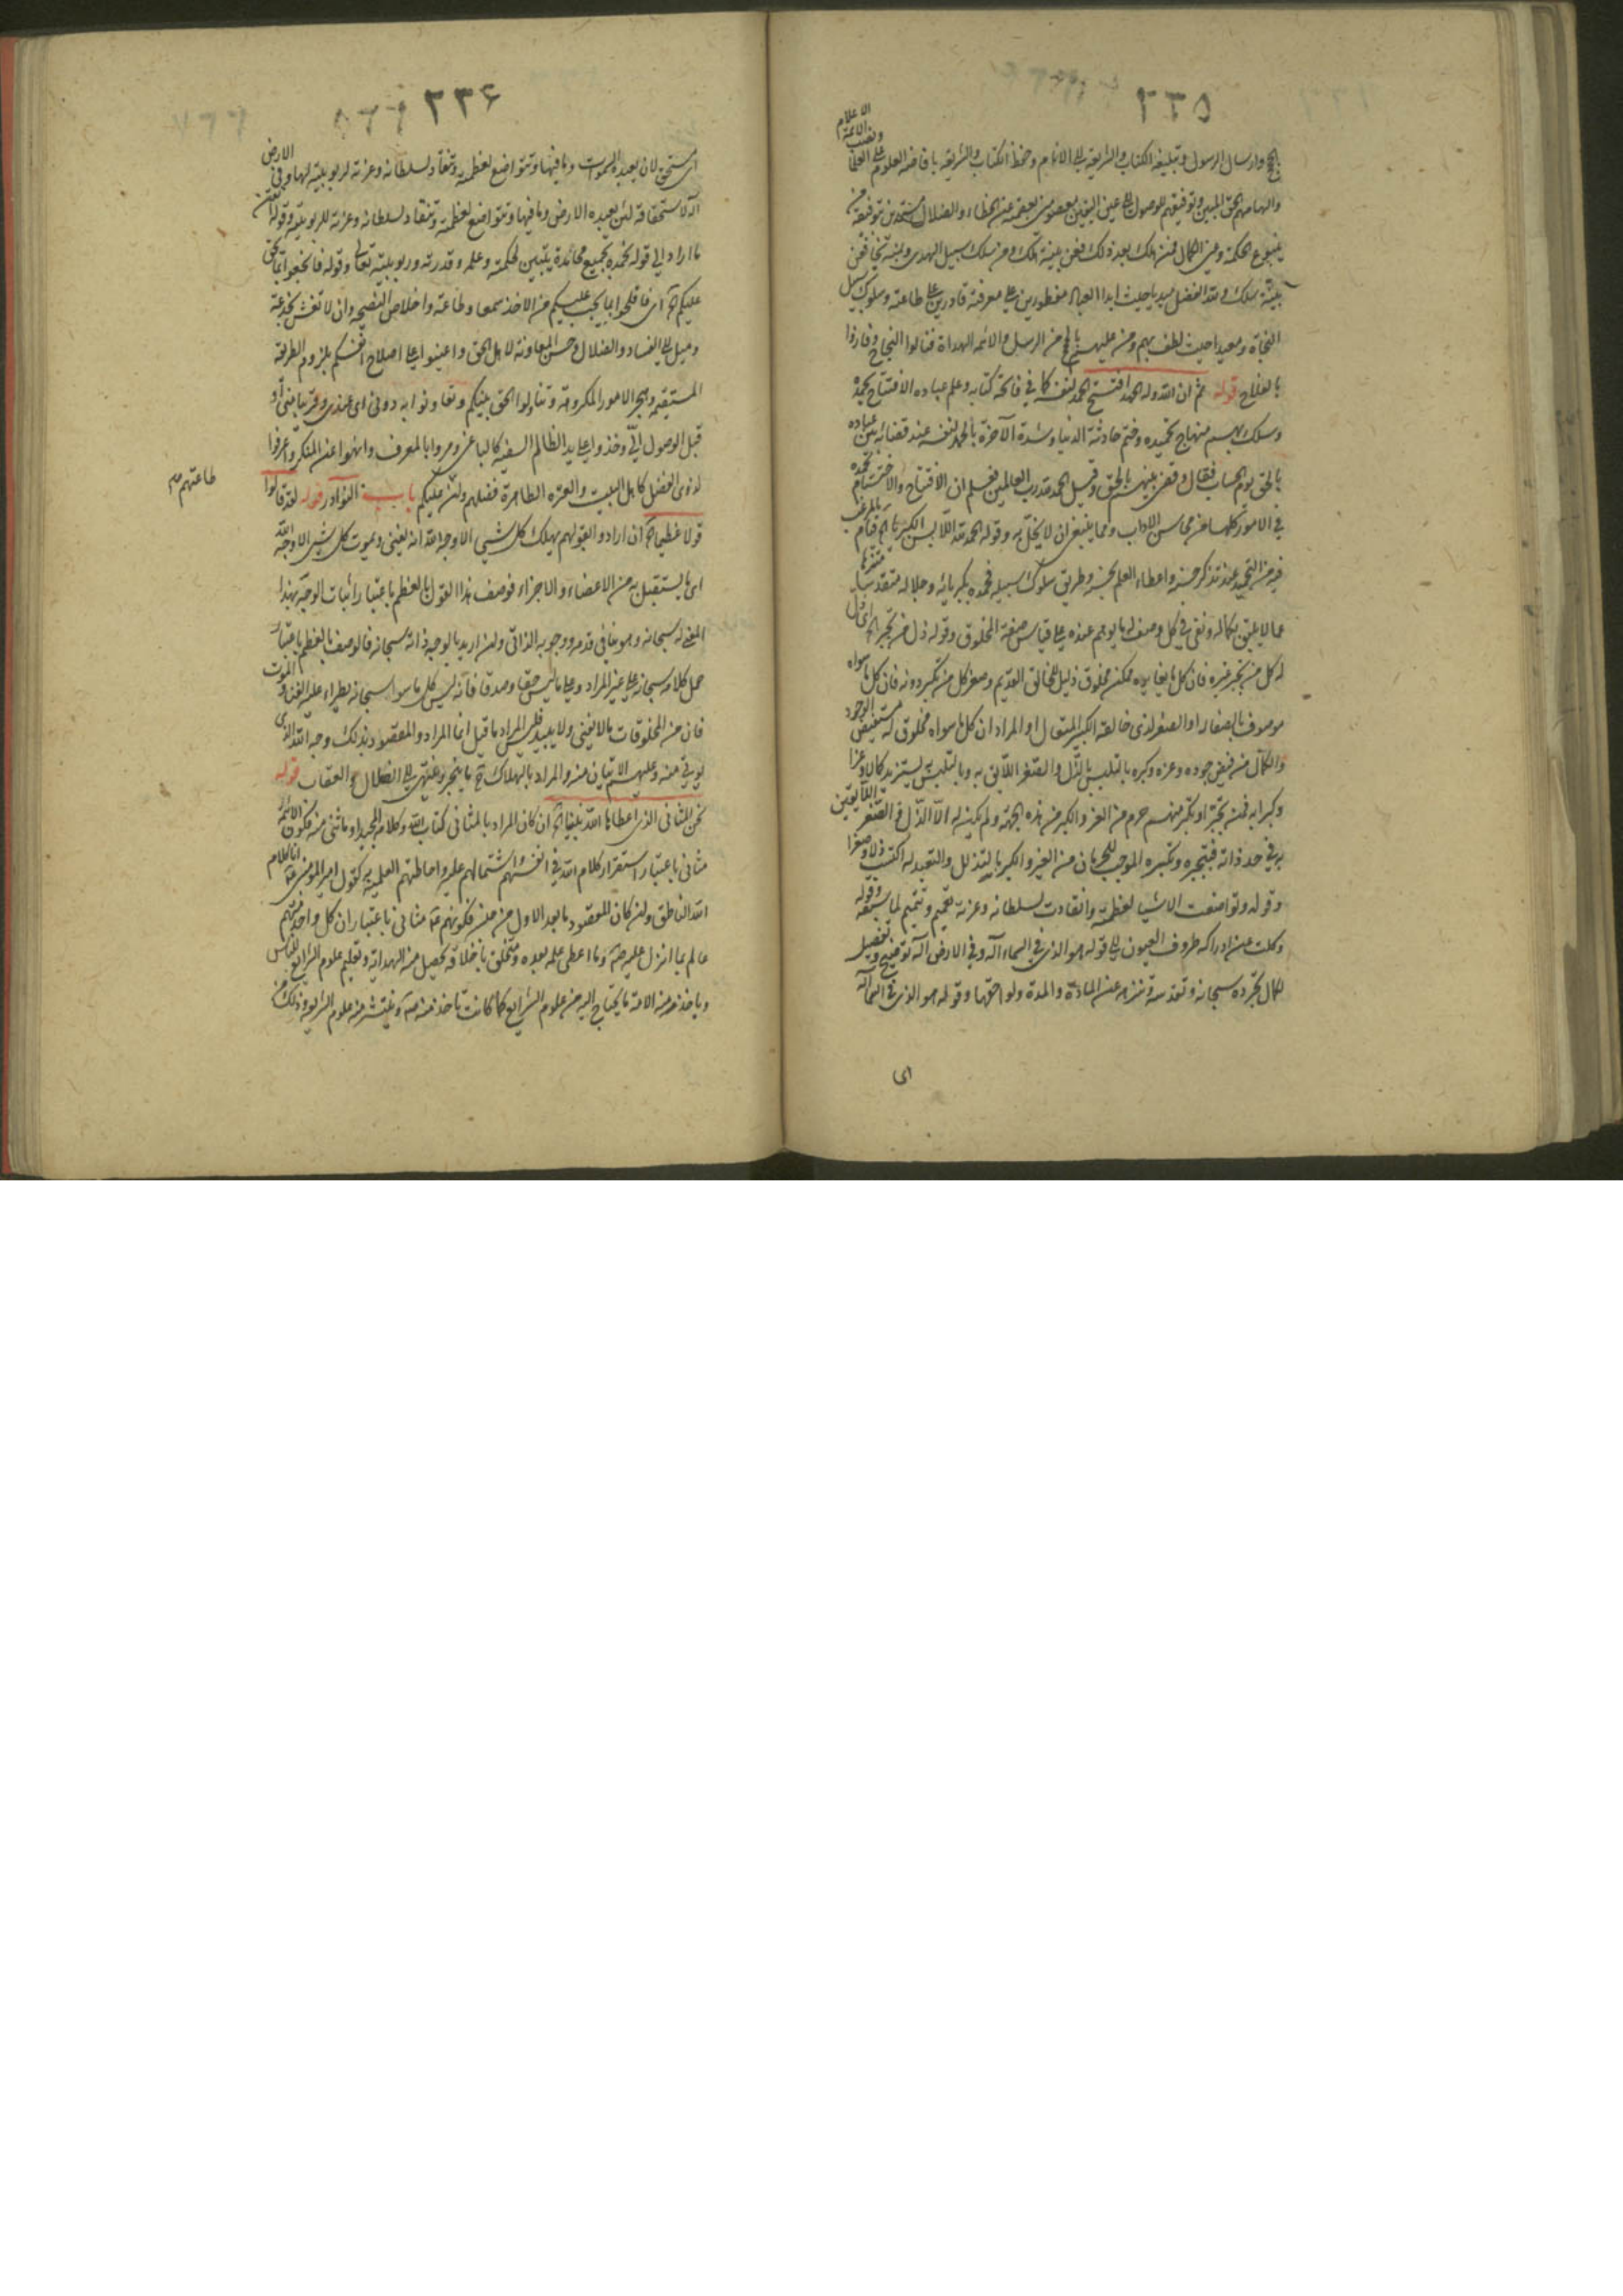 ٢٣٥
الاعلام
ونصب الائمة
بالحجج وارسال الرسول وتبليغه الكتاب والشريعة الى الانام وحفظ الكتاب والشريعة بافاضة العلوم على العلماء
والهامهم الحق المبين وتوفيقهم للوصول الى عين اليقين معصومين بعصمته عن الخطاء والضلال مستمدين بتوفيقه من
ينبوع الحكمة وعين الكمال فمن هلك بعد ذلك فعن بينة هلك ومن سلك سبيل الهدى ونجى فعن
بينة سلك ولله الفضل مبدياً حيث ابدا العباد مفطورين على معرفته قادرين على طاعته وسلوك سبيل
النجاة ومعيدا حيث لطف بهم ومن عليهم بالحجج من الرسل والائمة الهداة فنالوا النجاح وفازوا
بالفلاح قوله ثم ان الله وله الحمد افتتح الحمد لنفسه كما في فاتحة كتابه وعلم عباده الافتتاح بحمده
وسلك بهم منهاج تحميده وختم حادثة الدنيا وشدة الآخرة بالحمد لنفسه عند قضائه بين عباده
بالحق يوم الحساب فقال وقضى بينهم بالحق وقيل الحمد لله رب العالمين فعلم ان الافتتاح والاختتام بحمده
في الامور كلها من محاسن الاداب ومما ينبغى ان لا يخل به وقوله الحمد لله اللابس الكبرياء الخ قيام بالمرغب
فيه من التحميد عند تذكر حسنه واعطاء العلم بحسنه وطريق سلوك سبيله فحمده بكبريائه وجلاله متقدسا متنزها
عما لا يليق بكماله ونفى في كل وصف له ما يوهم عنده على قياس صفة المخلوق وقوله ذل من تجبر الخ اى ذل
له كل من تجبر غيره فان كل ما يغايره ممكن مخلوق ذليل للخالق القديم وصغر كل من تكبر دونه فان كل ما سواه
موصوف بالصغار او الصغر لدى خالقه الكبير المتعال او المراد ان كل ما سواه مخلوق له مستفيض الوجود
والكمال من فيض جوده وعزه وكبره بالتلبس بالذل والصغر اللايق به وبالتلبس يستزيد كمالا وعزا
وكبرا به فمن تجبر او تكبر منهم حرم من العز والكبر من هذه الجهة ولم يكن له الا الذل والصغر اللايقين
به في حد ذاته فبتجبره وتكبره الموجب للحرمان من العز والكبر بالتذلل والتعبد له اكتسب ذلا وصغرا
وقوله وتواضعت الاشياء لعظمته وانقادت لسلطانه وعزته تعميم وتتميم لما سبقه وقوله
وكلت عن ادراكه ظروف العيون الى قوله هو الذى في السماء اله وفي الارض اله توضيح وتفصيل
لكمال تجرده سبحانه وتقدسه وتنزهه عن المادة والمدة ولواحقها وقوله هو الذى في السماء اله
اى
٢٣۶
اى مستحق لان يعبده السموات وما فيها وتتواضع لعظمته وتنقاد لسلطانه وعزته لربوبيته لها وفى الارض
اله لاستحقاقه لئن يعبده الارض وما فيها وتتواضع لعظمته وتنقاد لسلطانه وعزته للربوبية وقوله اتقن
ما اراد الى قوله نحمده بجميع محامده يتبين لحكمته وعلمه وقدرته وربوبيته تعالى وقوله فانجعوا بما يحق
عليكم الخ اى فافلحوا بما يجب عليكم من الاخذ سمعا وطاعة واخلاص النصيحة وان لا تغش بخدعة
وميل الى الفساد والضلال وحسن المعاونة لاهل الحق واعينوا على اصلاح انفسكم بلزوم الطريقة
المستقيمة وهجر الامور المكروهة وتناولوا الحق بينكم وتعاونوا به دونى اى عندى وقريبا منى او
قبل الوصول الى وخذوا على يد الظالم السفيه كالباغى ومروا بالمعرف وانهوا عن المنكر واعرفوا
لذوى الفضل كاهل البيت والعترة الطاهرة فضلهم ولن عليكم باب النوادر قوله لقد قالوا
طاعتهم صح
قولا عظيما الخ ان ارادوا بقولهم يهلك كل شيى الا وجه الله انه يفنى ويموت كل شيى الا وجه الله
اى ما يستقبل به من الاعضاء والاجزاء فوصف هذا القول بالعظم باعتبار اثبات الوجه بهذا
المعنى له سبحانه وهو ينافى قدمه ووجوبه الذاتى ولئن اريد بالوجه ذاته سبحانه فالوصف بالعظم باعتبار
حمل كلامه سبحانه على غير المراد وعلى ما ليس حقا وصدقا فانه ليس كل ما سوا سبحانه يطراء عليه الفناء والموت
فان من المخلوقات ما لا يفنى ولا يبيد فليس المراد ما قيل انما المراد والمقصود بذلك وجه الله الذى
يوتى منه وعليهم الاتيان منه والمراد بالهلاك ح ما ينجر وينتهى الى الضلال والعقاب قوله
نحن المثانى الذى اعطاها الله نبينا الخ ان كان المراد بالمثانى كتاب الله وكلامه المجيد او ما ثنى منه فكون الائمة
مثانى باعتبار استقرار كلام الله في انفسهم واشتمالهم عليه واحاطتهم العلمية به كقول امير المؤمنين انا كلام
الله الناطق ولئن كان المقصود ما بعد الاول من فكونهم مثانى باعتبار ان كل واحد منهم
عالم بما انزل عليه وما اعطى علمه بعده ومتخلق باخلاقه تحصيل منه الهداية وتعليم علوم الشرايع للناس
وياخذ منه الامة ما يحتاج اليه من علوم الشرايع كما كانت تاخذ منه وينتشر منه علوم الشريعة وذلك من